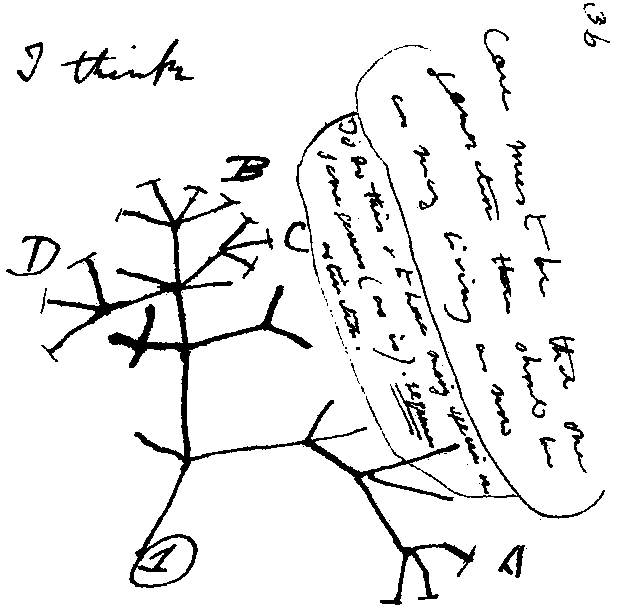 36
I think
Case must be that one
generation then should be
as many living as now
To do this & to have many species in
same genus (as is). requires
extinction.
B
D
C
A
1